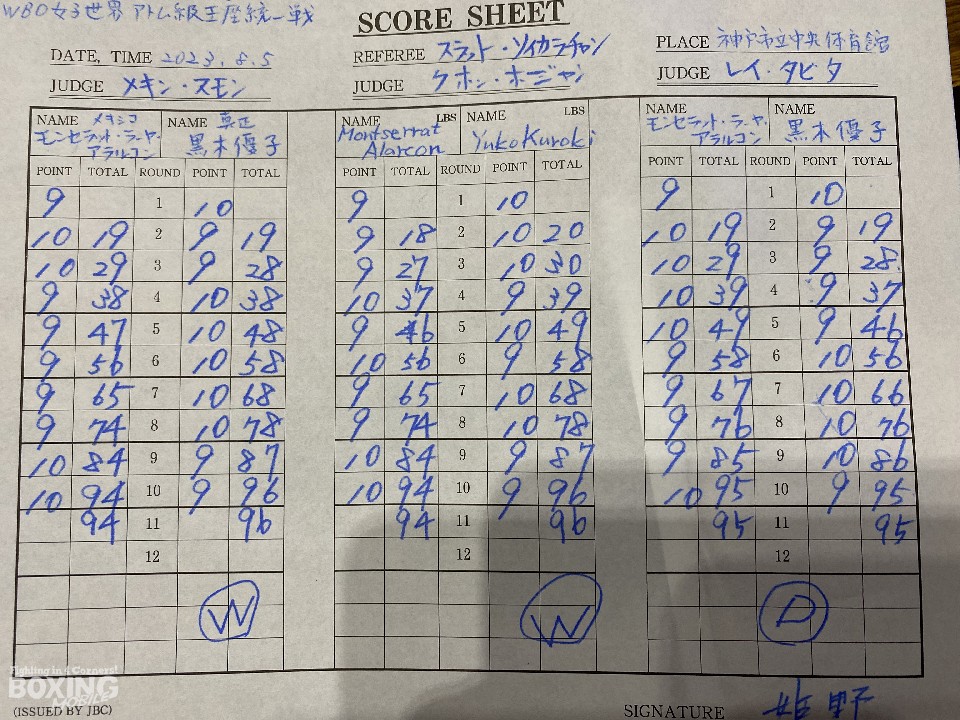 WBO女子世界 アトム級王座統一戦
SCORE SHEET
DATE, TIME 2023.8.5
REFEREE スラット・ソイカラチャン
PLACE 神戸市立中央体育館
JUDGE メキン・スモン
JUDGE ケホン・ホージャン
JUDGE レイ・タビタ
NAME メキシコ モンセラット・ラーヤ・アラルコン NAME 真正 黒木優子
NAME LBS Montserrat Alarcon NAME LBS Yuko Kuroki
NAME モンセラット・ラーヤ・アラルコン NAME 黒木優子
POINT TOTAL ROUND POINT TOTAL POINT TOTAL ROUND POINT TOTAL POINT TOTAL ROUND POINT TOTAL
9 1 10 9 1 10 9 1 10
10 19 2 9 19 9 18 2 10 20 10 19 2 9 19
10 29 3 9 28 9 27 3 10 30 10 29 3 9 28
9 38 4 10 38 10 37 4 9 39 10 39 4 9 37
9 47 5 10 48 9 46 5 10 49 10 49 5 9 46
9 56 6 10 58 10 56 6 9 58 9 58 6 10 56
9 65 7 10 68 9 65 7 10 68 9 67 7 10 66
9 74 8 10 78 9 74 8 10 78 9 76 8 10 76
10 84 9 9 87 10 84 9 9 87 9 85 9 10 86
10 94 10 9 96 10 94 10 9 96 10 95 10 9 95
94 11 96 94 11 96 95 11 95
12 12 12
W W D
Fighting in 4 Corners!
BOXING
MOBILE
(ISSUED BY JBC)
SIGNATURE